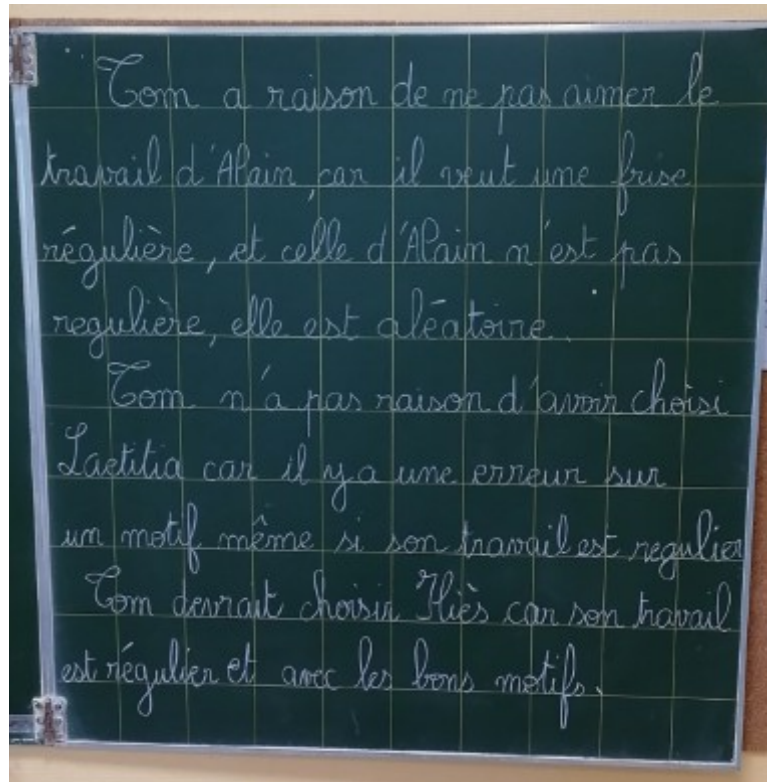 Tom a raison de ne pas aimer le
travail d'Alain, car il veut une frise
régulière, et celle d'Alain n'est pas
regulière, elle est aléatoire.
Tom n'a pas raison d'avoir choisi
Laetitia car il y a une erreur sur
un motif même si son travail est regulier
Tom devrait choisir Iliès car son travail
est régulier et avec les bons motifs.